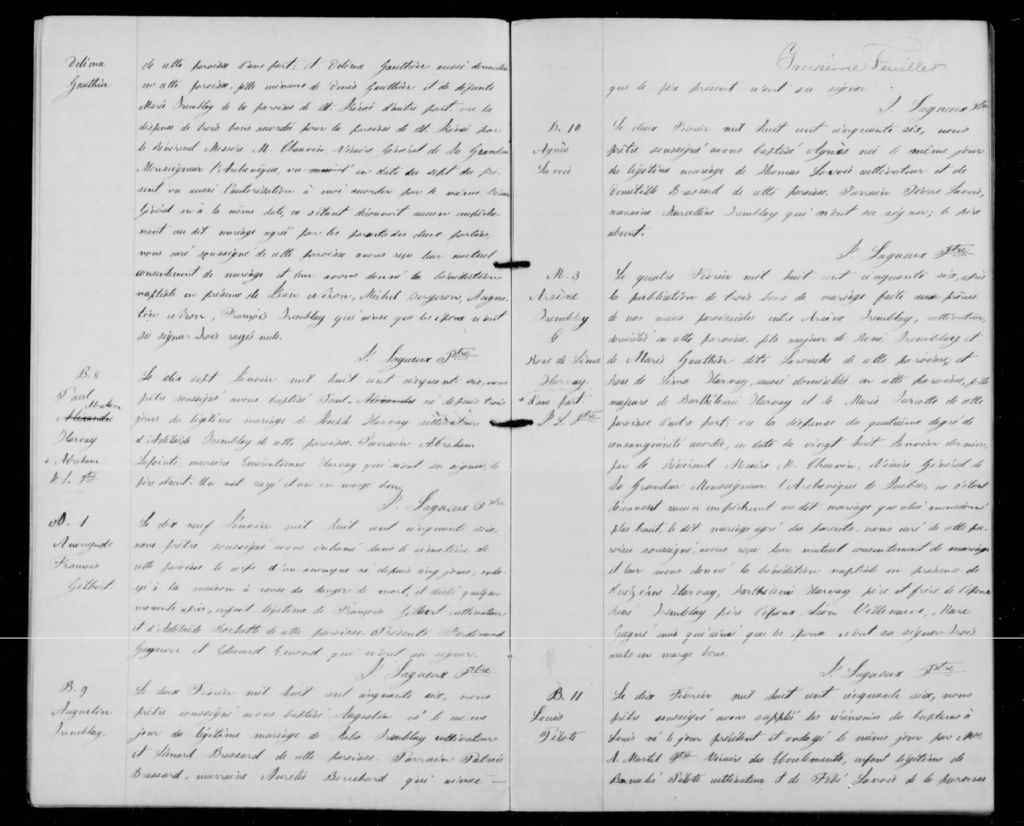 Délima
Gauthier
de cette paroisse d'une part; et Délima Gauthier aussi domiciliée
en cette paroisse, fille mineure de Denis Gauthier et de défunte
Marie Tremblay de la paroisse de St. Irénée d'autre part, vu la
dispense de trois bans accordée pour la paroisse de St. Irénée par
le Révérend Messire M. Chauvin Vicaire Général de Sa Grandeur
Monseigneur l'Archevêque, en date du sept du pré-
sent vu aussi l'autorisation à moi accordée par le même Vicaire
Général en à la même date, ne s'étant découvert aucun empêche-
ment au dit mariage agréé par les parents des deux parties,
nous curé soussigné de cette paroisse avons reçu leur mutuel
consentement de mariage et leur avons donné la bénédiction
nuptiale en présence de Léon Néron, Michel Bergeron, Augus-
tin Néron, François Tremblay qui ainsi que les époux n'ont
su signer. Trois rayés nuls.
J. Lagueux Ptre
B. 8
Paul
Abraham
Alexandre
Harvay
x Abraham
J. L. Ptre
Le dix sept Janvier mil huit cent cinquante six, nous
prêtre soussigné avons baptisé Paul Alexandre né depuis trois
jours du légitime mariage de Joseph Harvay cultivateur
d'Adelaïde Tremblay de cette paroisse. Parrain Abraham
Lapointe, marraine Harvay qui n'ont su signer, le
père absent. Un mot rayé et un en marge bon.
J. Lagueux Ptre
S. 1
Anonyme de
François
Gilbert
Le dix neuf Janvier mil huit cent cinquante six,
nous prêtre soussigné avons inhumé dans le cimetière de
cette paroisse le corps d'un anonyme né depuis cinq jours, ondo-
yé à la maison à cause du danger de mort, et décédé quelques
moments après, enfant légitime de François Gilbert cultivateur
et d'Adelaïde Rochette de cette paroisse. Présents Ferdinand
Gagnon et Edouard Emond qui n'ont su signer.
J. Lagueux Ptre
B. 9
Augustin
Tremblay.
Le deux Février mil huit cent cinquante six, nous
prêtre soussigné avons baptisé Augustin né le même
jour du légitime mariage de Jules Tremblay cultivateur
et Brassard de cette paroisse. Parrain Patrice
Brassard, marraine Aurélie Bouchard qui ainsi —
Troisième Feuillet
que le père présent n'ont su signer.
J. Lagueux Ptre
B. 10
Agnès
Savoie
Le deux Février mil huit cent cinquante six, nous
prêtre soussigné avons baptisé Agnès née le même jour
du légitime mariage de Thomas Savoie cultivateur et de
Domithilde Brassard de cette paroisse. Parrain Savoie,
marraine Marcelline Tremblay qui n'ont su signer; le père
absent.
J. Lagueux Ptre
M. 3
Arsène
Tremblay
&
Rose de Lima
Harvay.
x d'une part
J. L. Ptre
Le quatre Février mil huit cent cinquante six, après
la publication de trois bans de mariage faite aux prônes
de nos messes paroissiales entre Arsène Tremblay, cultivateur,
domicilié en cette paroisse, fils majeur de René Tremblay et
de Marie Gauthier dite Larouche de cette paroisse x et
Rose de Lima Harvay, aussi domiciliée en cette paroisse, fille
majeure de Barthélemi Harvay et de Marie Turcotte de cette
paroisse d'autre part; vu la dispense du quatrième degré de
consanguinité accordée, en date du vingt huit Janvier dernier,
par le Révérend Messire M. Chauvin, Vicaire Général de
Sa Grandeur Monseigneur l'Archevêque de Québec, ne s'étant
découvert aucun empêchement au dit mariage que celui mentionné
plus haut, le dit mariage agréé des parents, nous curé de cette pa-
roisse soussigné, avons reçu leur mutuel consentement de mariage
et leur avons donné la bénédiction nuptiale en présence de
Harvay, Barthélemi Harvay père et frère de l'épouse
René Tremblay père l'époux, Léon Villeneuve, Marc
Gagné amis qui ainsi que les époux n'ont su signer. Trois
mots en marge bons.
J. Lagueux Ptre
B. 11
Louis
Pilote
Le dix Février mil huit cent cinquante six, nous
prêtre soussigné avons suppléé les cérémonies du baptême à
Louis né le jour précédent et ondoyé le même jour par Mre
A. Martel Ptre Vicaire des Eboulements, enfant légitime de
Barnabé Pilote cultivateur et de Fébé Savoie de la paroisse